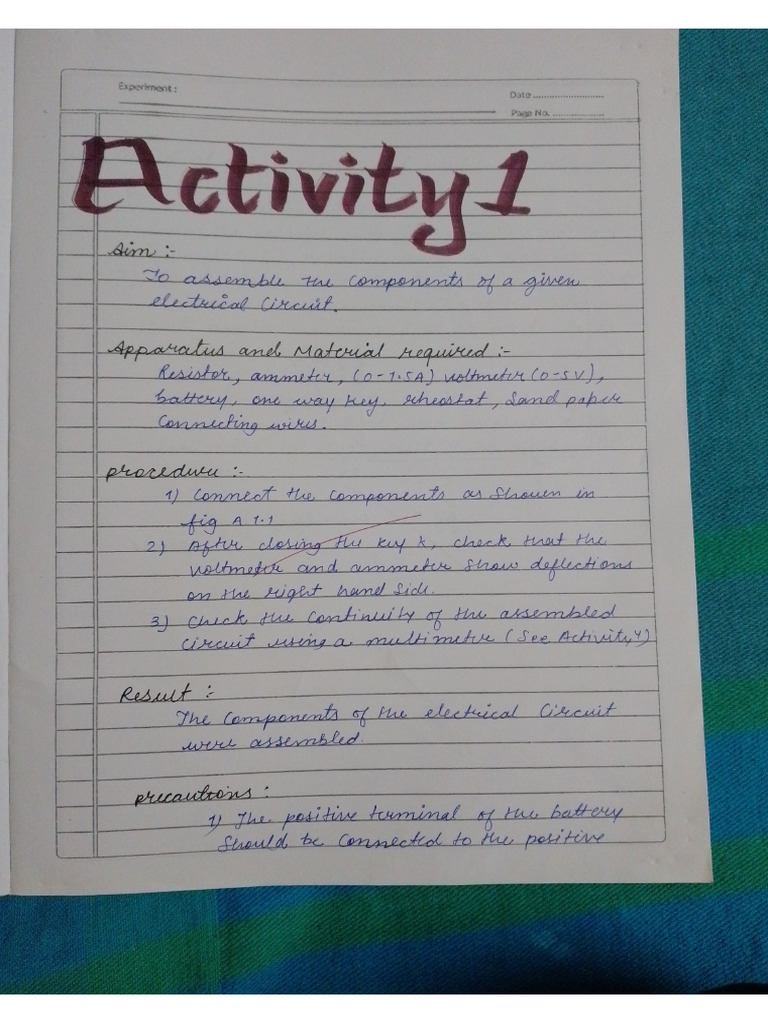 Experiment :
Date ........................
Page No. ..................
Activity 1
Aim :-
To assemble the components of a given
electrical circuit.
Apparatus and Material required :-
Resistor, ammeter, (0-1.5A) voltmeter (0-5V),
battery, one way key, rheostat, Sand paper
Connecting wires.
procedure :-
1) Connect the components as shown in
fig A 1.1
2) After closing the key k, check that the
voltmeter and ammeter show deflections
on the right hand side.
3) Check the continuity of the assembled
circuit using a multimetre (See Activity 4)
Result :-
The components of the electrical Circuit
were assembled.
precautions :
1) The positive terminal of the battery
should be connected to the positive